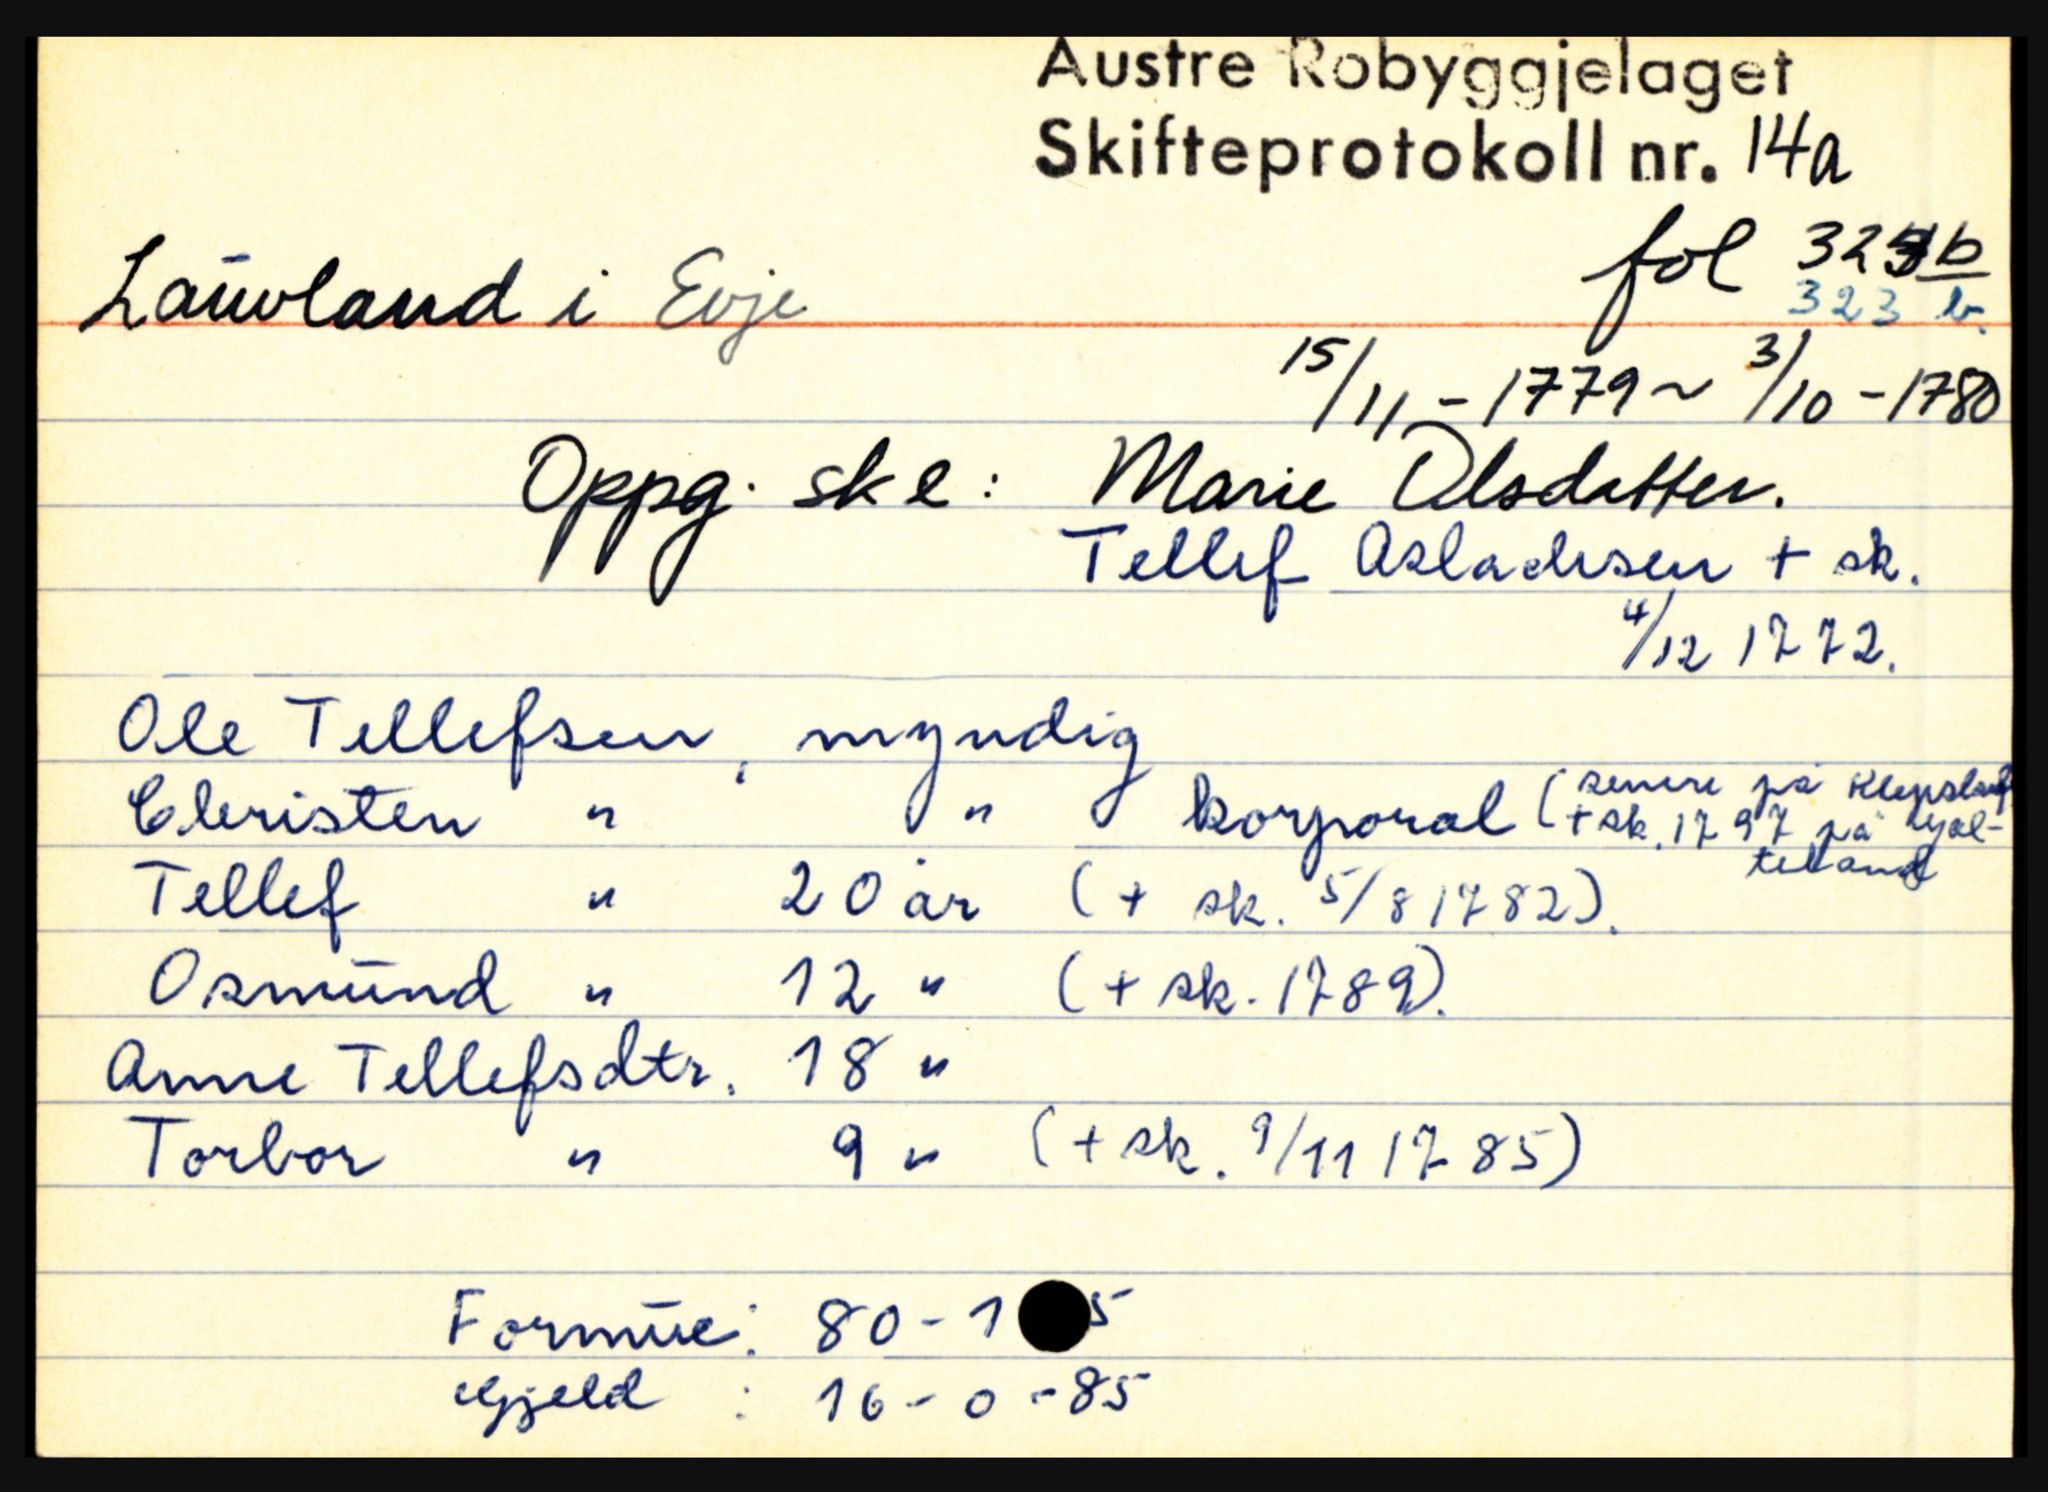 Austre Robyggjelaget
Skifteprotokoll nr. 14a
fol 323b
Lauvland i Evje 323 b.
15/11 - 1779 ~ 3/10 - 1780
Oppg. ske: Marie Olsdatter.
Tellef Aslachsen + sk.
4/12 1772.
Ole Tellefsen, myndig
Christen " " korporal (senere på Klepsland
+ sk. 1797 på
Tellef " 20 år (+ sk. 5/8 1782).
Osmund " 12 " (+ sk. 1789).
Anne Tellefsdtr. 18 "
Torbor " 9 " (+ sk. 9/11 1785)
Formue: 80 - 1 5
Gjeld : 16 - 0 - 85